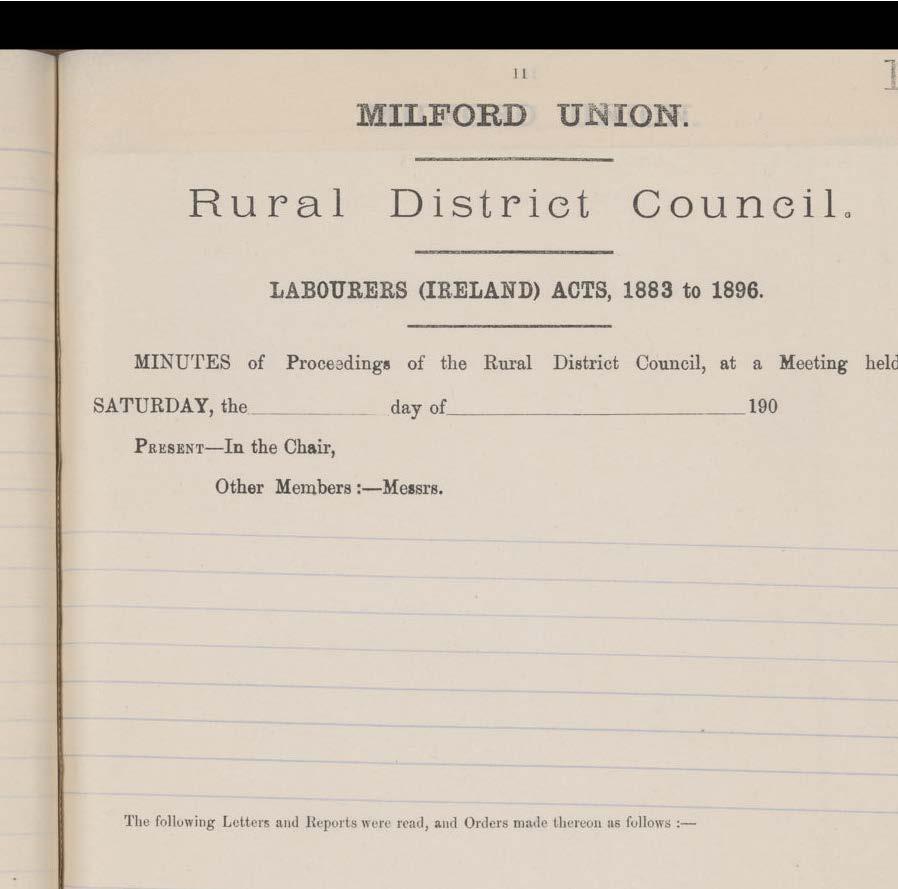 11
MILFORD UNION.
Rural District Council.
LABOURERS (IRELAND) ACTS, 1883 to 1896.
MINUTES of Proceedings of the Rural District Council, at a Meeting held
SATURDAY, the______________ day of______________________________190
PRESENT—In the Chair,
Other Members :—Messrs.
The following Letters and Reports were read, and Orders made thereon as follows :—